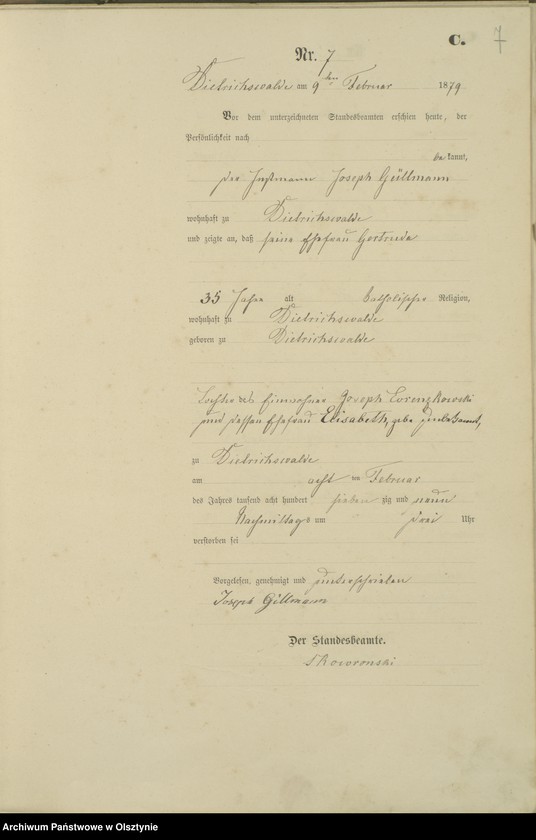 C. 7
Nr. 7
Dietrichswalde am 9ten Februar 1879
Vor dem unterzeichneten Standesbeamten erschien heute, der
Persönlichkeit nach
bekannt,
der Instmann Joseph Güllmann
wohnhaft zu Dietrichswalde
und zeigte an, daß seine Ehefrau Gertrude
35 Jahre alt katholischer Religion,
wohnhaft zu Dietrichswalde
geboren zu Dietrichswalde
Tochter des Einwohner Joseph Lorenzkowski
und dessen Ehefrau Elisabeth, geb. unbekannt,
zu Dietrichswalde
am acht ten Februar
des Jahres tausend acht hundert sieben zig und neun
Nachmittags um drei Uhr
verstorben sei
Vorgelesen, genehmigt und unterschrieben
Joseph Gillmann
Der Standesbeamte.
Skowronski
Archiwum Państwowe w Olsztynie